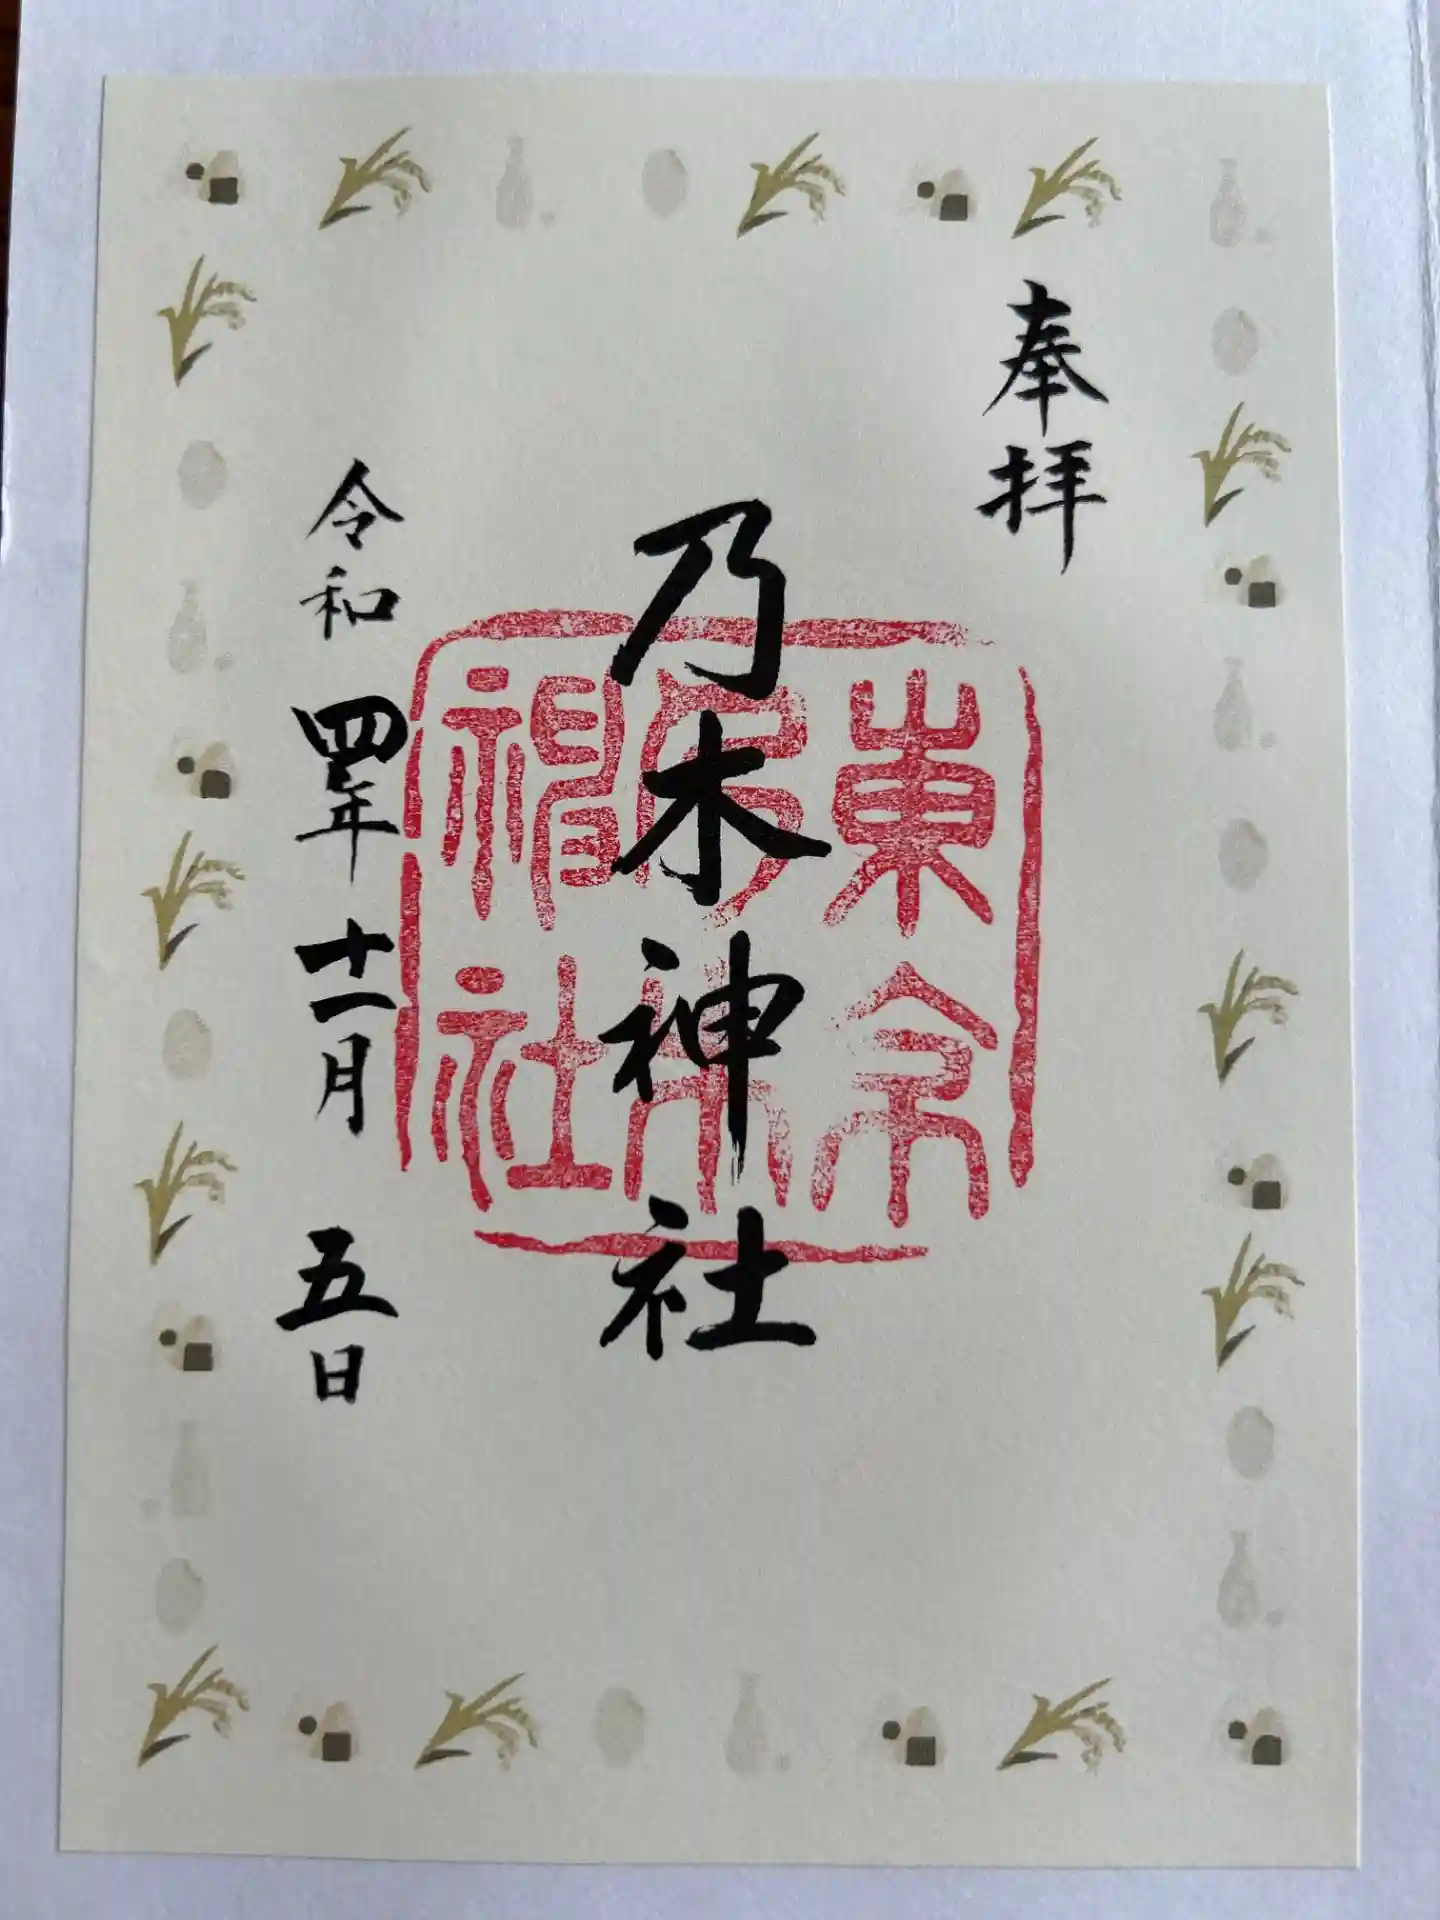 奉拝
乃木神社
東京
乃木
神社
令和四年十一月五日